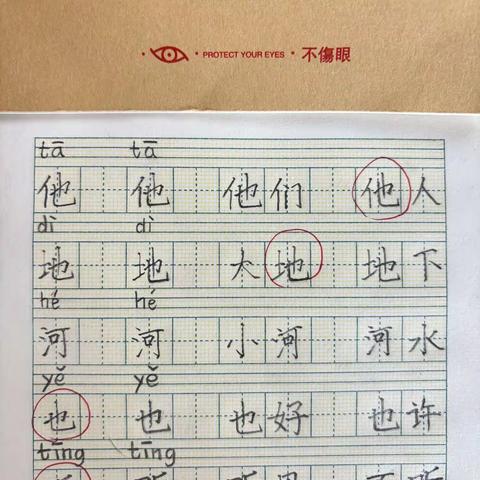 PROTECT YOUR EYES · 不傷眼
tā tā
他 他 他们 他人
dì dì
地 地 大地 地下
hé hé
河 河 小河 河水
yě yě
也 也 也好 也许
tīng tīng